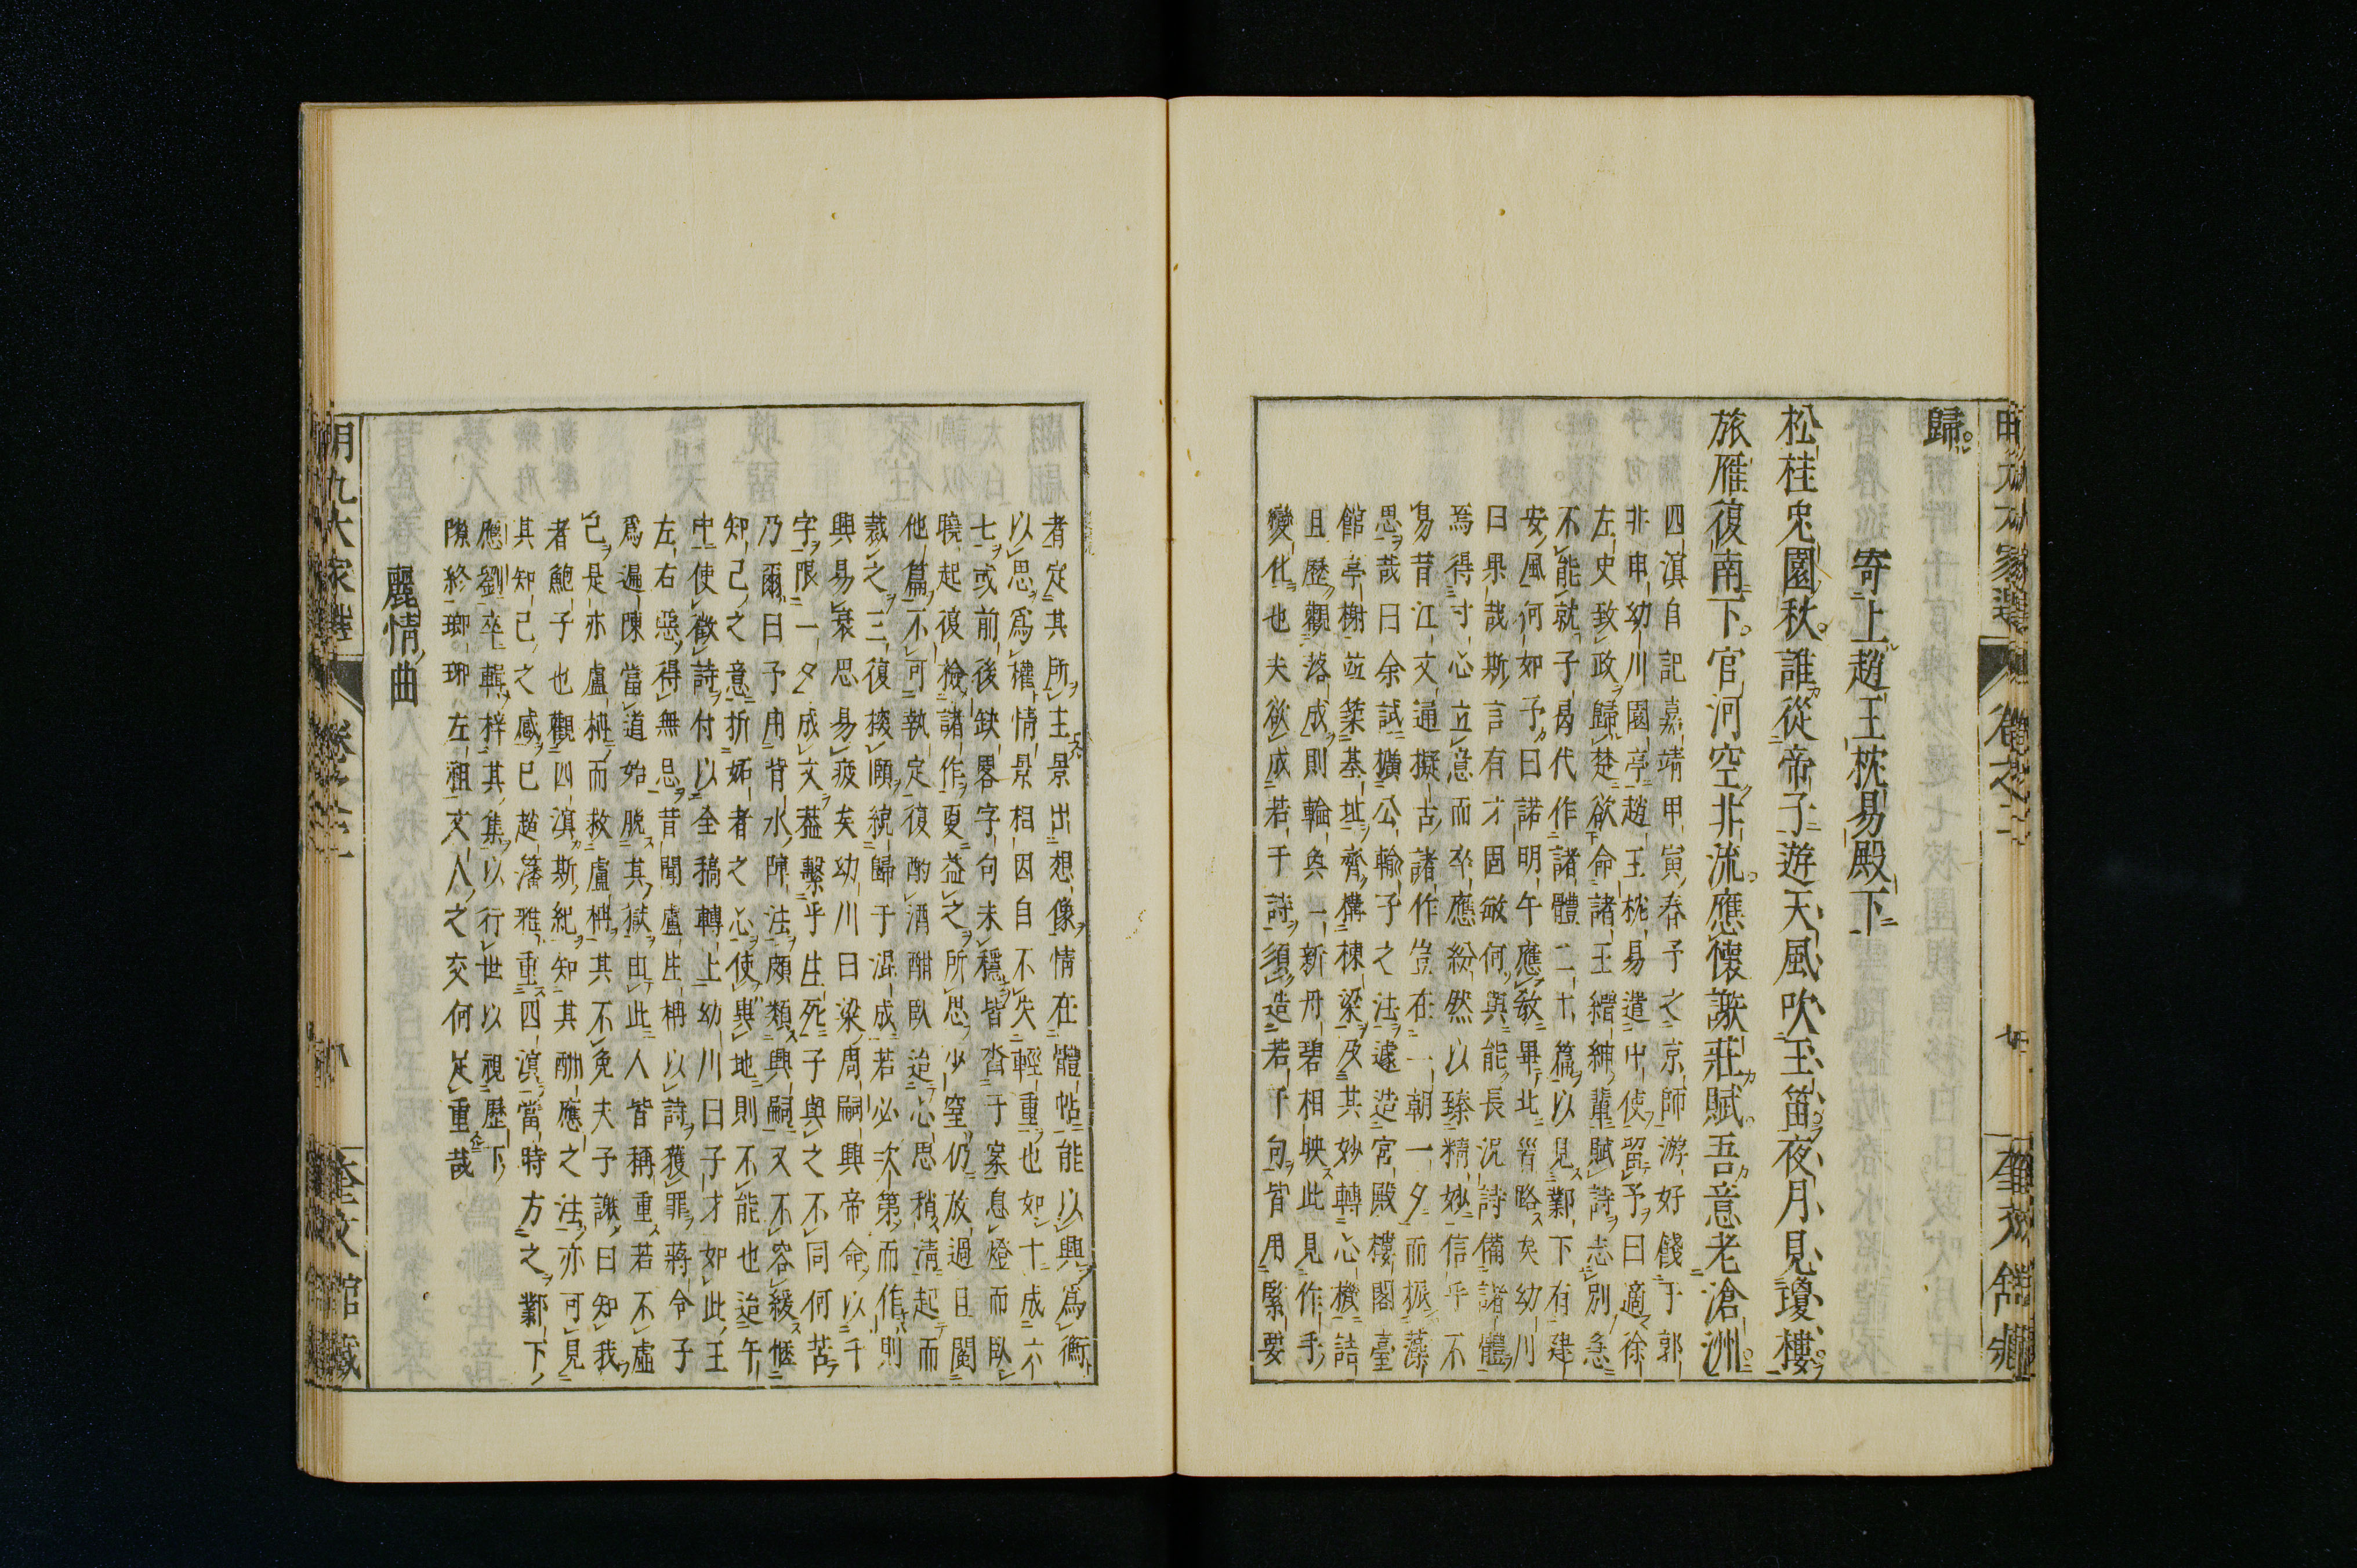 歸
寄上趙王枕易殿下
松桂兎園秋誰從帝子遊天風吹玉笛夜月見瓊樓
旅雁復南下官河空非流應懷謝莊賦吾意老滄洲
四溟自記嘉靖甲寅春予之京師游好餞于郭
非申幼川園亭趙王枕易遣中使留予曰適徐
左史致政歸楚欲命諸王縉紳輩賦詩志別急
不能就子曷代作諸體二十篇以見鄴下有建
安風何如予曰諾明午應敎畢北胥略矣幼川
曰果哉斯言有才固敏何與能長況詩備諸體
焉得寸心立意而卒應紛然以臻精妙信乎不
易昔江文通擬古諸作豈在一朝一夕而振藻
思哉曰余試擴公輸子之法遽造宮殿樓閣臺
館亭榭竝築基址齊構棟梁及其妙轉心機詰
且歷觀落成則輪奐一新丹碧相映此見作手
變化也夫欲成若干詩須造若干句皆用緊要
者定其所主景出想像情在體帖能以興爲衡
以思爲權情景相因自不失輕重也如十成六
七或前後缺畧字句未穩皆沓于案息燈而臥
曉起復檢諸作更益之所思少窒仍放過日閱
他篇不可執定復酌酒酣臥迨心思稍淸起而
裁之三復挍願統歸于混成若必次第而作則
興易衰思易疲矣幼川曰梁周嗣興帝命以千
字限一夕成文葢繫乎生死子與之不同何苦
乃爾曰予用背水陣法頗類興嗣又不容緩愜
知己之意折妬者之心使與地則不能也迨午
中使徵詩付以全稿轉上幼川曰子才如此王
左右惡得無忌昔聞盧生柟以詩獲罪蔣令子
爲遍陳當道始脫其獄由此人皆稱重若不虛
己是亦盧柟而救盧柟其不免夫予謝曰知我
者鮑子也觀四溟斯紀知其酬應之法亦可見
其知己之感已趙藩雅重四溟當時方之鄴下
應劉卒輯梓其集以行世以視歷下
隙終瑯琊左祖文人之交何足重哉
麗情曲
明九大家選
卷之二
奎文館藏